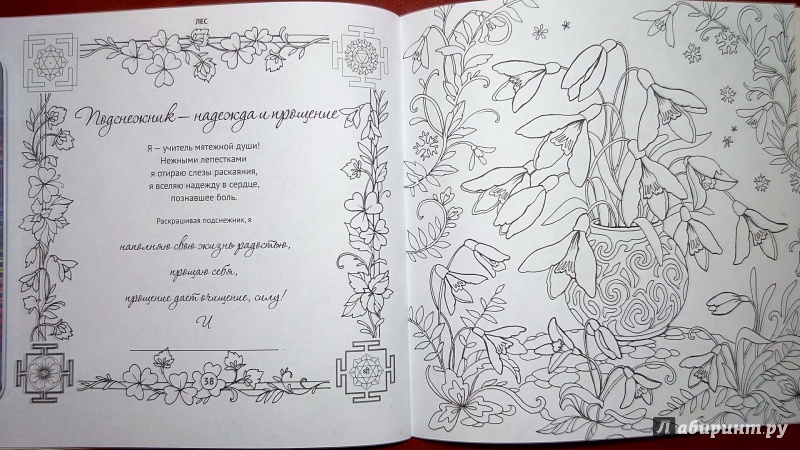 ЛЕС
Подснежник — надежда и прощение
Я — учитель мятежной души!
Нежными лепестками
я отираю слезы раскаяния,
я вселяю надежду в сердце,
познавшее боль.
Раскрашивая подснежник, я
наполняю свою жизнь радостью,
прощаю себя,
прощение дает очищение, силу!
И
38
Лабиринт.ру